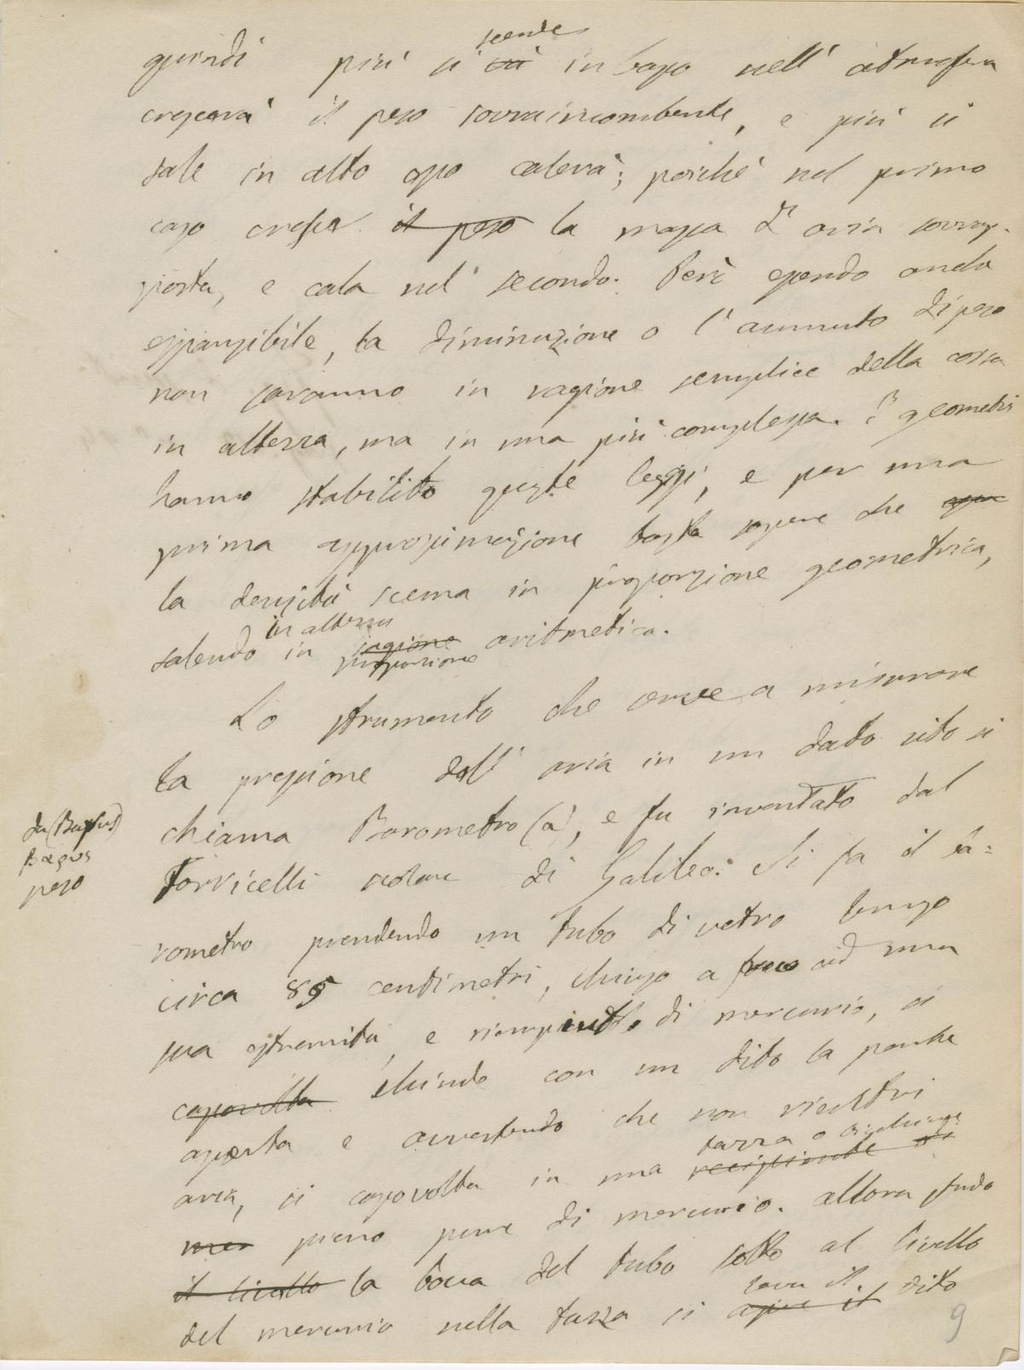 scende
quindi più si va in basso nell'atmosfera
crescerà il peso sovraincombente, e più si
sale in alto esso calerà; poichè nel primo
caso cresce il peso la massa d'aria sovrap-
posta, e cala nel secondo. Però essendo
espansibile, la diminuzione o l'aumento di peso
non saranno in ragione semplice della
in altezza, ma in una più complessa. I geometri
hanno stabilito queste leggi, e per una
prima approssimazione basta sapere che
la densità scema in proporzione geometrica,
in altezza
salendo in ragione aritmetica.
proporzione
Lo strumento che serve a misurare
la pressione dell'aria in un dato sito si
chiama Barometro (a), e fu inventato dal
da (Barus)
peso
Torricelli scolare di Galileo. Si fa il ba=
rometro prendendo un tubo di vetro lungo
circa 85 centimetri, chiuso a fuoco ad una
sua estremità, e riempiutolo di mercurio, si
capovolta chiude con un dito la parte
aperta e avvertendo che non rientri
tazza o
aria, si capovolta in una recipiente di
mer pieno pure di mercurio. Allora stando
il livello la bocca del tubo sotto al livello
leva il
del mercurio nella tazza si apre il dito
9